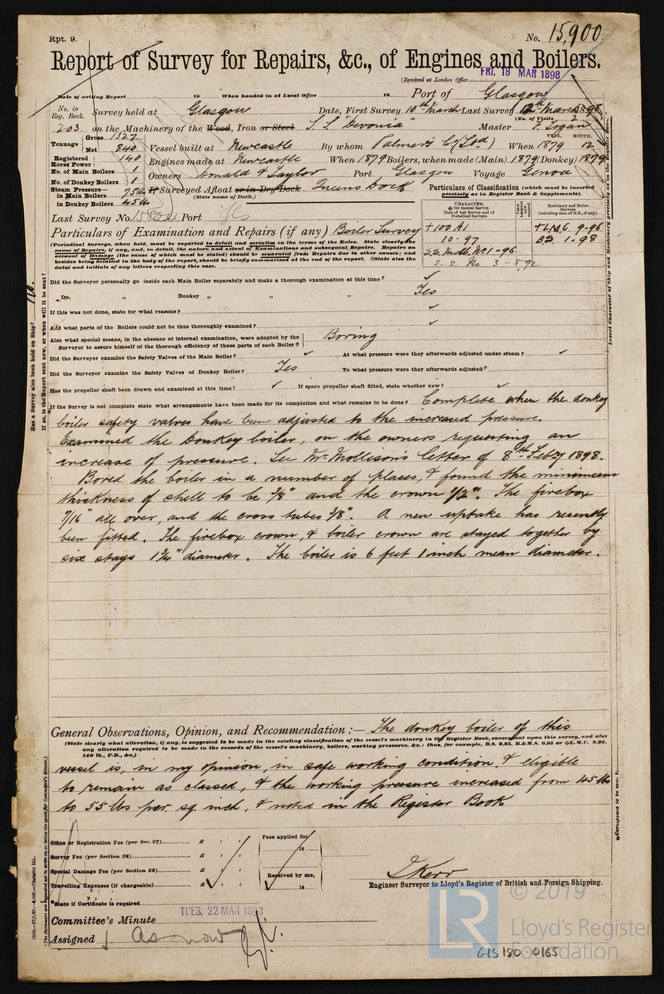 Rpt. 9.
No. 15,900
Report of Survey for Repairs, &c., of Engines and Boilers.
(Received at London Office
FRI. 18 MAR 1898
Date of writing Report 18 When handed in at Local Office 18 Port of Glasgow
No. in Reg. Book. Survey held at Glasgow Date, First Survey 10th March Last Survey 12th March 1898
(No. of Visits 2)
203 on the Machinery of the Wood, Iron or Steel S.S. "Devonia" Master F. Logan
Tonnage Gross 1327 Net 840 Vessel built at Newcastle By whom Palmer's Co (Ltd) When 1879 12
YEAR. MONTH.
Registered Horse Power 140 Engines made at Newcastle When 1879 Boilers, when made (Main) 1879 (Donkey) 1879
No. of Main Boilers 1 Owners Donald & Taylor Port Glasgow Voyage Genoa
No. of Donkey Boilers 1
Steam Pressure in Main Boilers 75 lb If Surveyed Afloat or in Dry Dock Queens Dock
(State name of Dock.)
in Donkey Boilers 45 lb
Particulars of Classification (which must be inserted precisely as in Register Book & Supplements).
Last Survey No. 15802 Port Gls
Particulars of Examination and Repairs (if any) Boiler Survey
+100 A1
10.97
SS Mdb. No1-96
S.S. No 3-5.92
+LMC 9-96
BS 1.98
(Periodical Surveys, when held, must be reported in detail and seriatim in the terms of the Rules. State clearly the
cause of Repairs, if any, and, in detail, the nature and extent of Examinations and subsequent Repairs. Repairs on
account of Damage (the cause of which must be stated) should be separated from Repairs due to other causes; and
besides being detailed in the body of the report, should be briefly summarised at the end of the report. State also the
dates and initials of any letters respecting this case.
Did the Surveyor personally go inside each Main Boiler separately and make a thorough examination at this time?
Do. " Donkey " " " Yes
If this was not done, state for what reasons?
And what parts of the Boilers could not be thus thoroughly examined?
Also what special means, in the absence of internal examination, were adopted by the
Surveyor to assure himself of the thorough efficiency of those parts of each Boiler? Boring
Did the Surveyor examine the Safety Valves of the Main Boiler? At what pressure were they afterwards adjusted under steam?
Did the Surveyor examine the Safety Valves of Donkey Boiler? Yes To what pressure were they afterwards adjusted?
Has the propeller shaft been drawn and examined at this time? If spare propeller shaft fitted, state whether new?
If the Survey is not complete state what arrangements have been made for its completion and what remains to be done? Complete when the donkey
boiler safety valves have been adjusted to the increased pressure.
Examined the Donkey boiler, on the owners requesting an
increase of pressure. See Mr Mollison's letter of 8th Feby 1898.
Bored the boiler in a number of places, & found the minimum
thickness of shell to be 3/8" and the crown 1/2". The firebox
7/16" all over, and the cross tubes 3/8". A new uptake has recently
been fitted. The firebox crown, & boiler crown are stayed together by
six stays 1 3/4" diameter. The boiler is 6 feet 1 inch mean diameter.
General Observations, Opinion, and Recommendation:— The donkey boiler of this
(State clearly what alteration, if any, is suggested to be made in the existing classification of the vessel's machinery in the Register Book, consequent upon this survey, and also
any alteration required to be made in the records of the vessel's machinery, boilers, working pressures, &c.: thus, for example, B.S. 9,95, B.&M.S. 9,95 or L.M.C. 9,95,
140 lb., F.D., &c.)
vessel is, in my opinion, in safe working condition, & eligible
to remain as classed, & the working pressure increased from 45 lb
to 55 lbs per sq inch, & noted in the Register Book
Office or Registration Fee (per Sec. 27) £ : :
Fees applied for 18
Survey Fee (per Section 28) £ : :
Special Damage Fee (per Section 28) £ : :
Received by me, 18
Travelling Expenses (if chargeable) £ : :
State if Certificate is required
J Kerr
Engineer Surveyor to Lloyd's Register of British and Foreign Shipping.
Committee's Minute TUES. 22 MAR 1898
Assigned As now
© 2019
LR Lloyd's Register Foundation
GLS180-0165